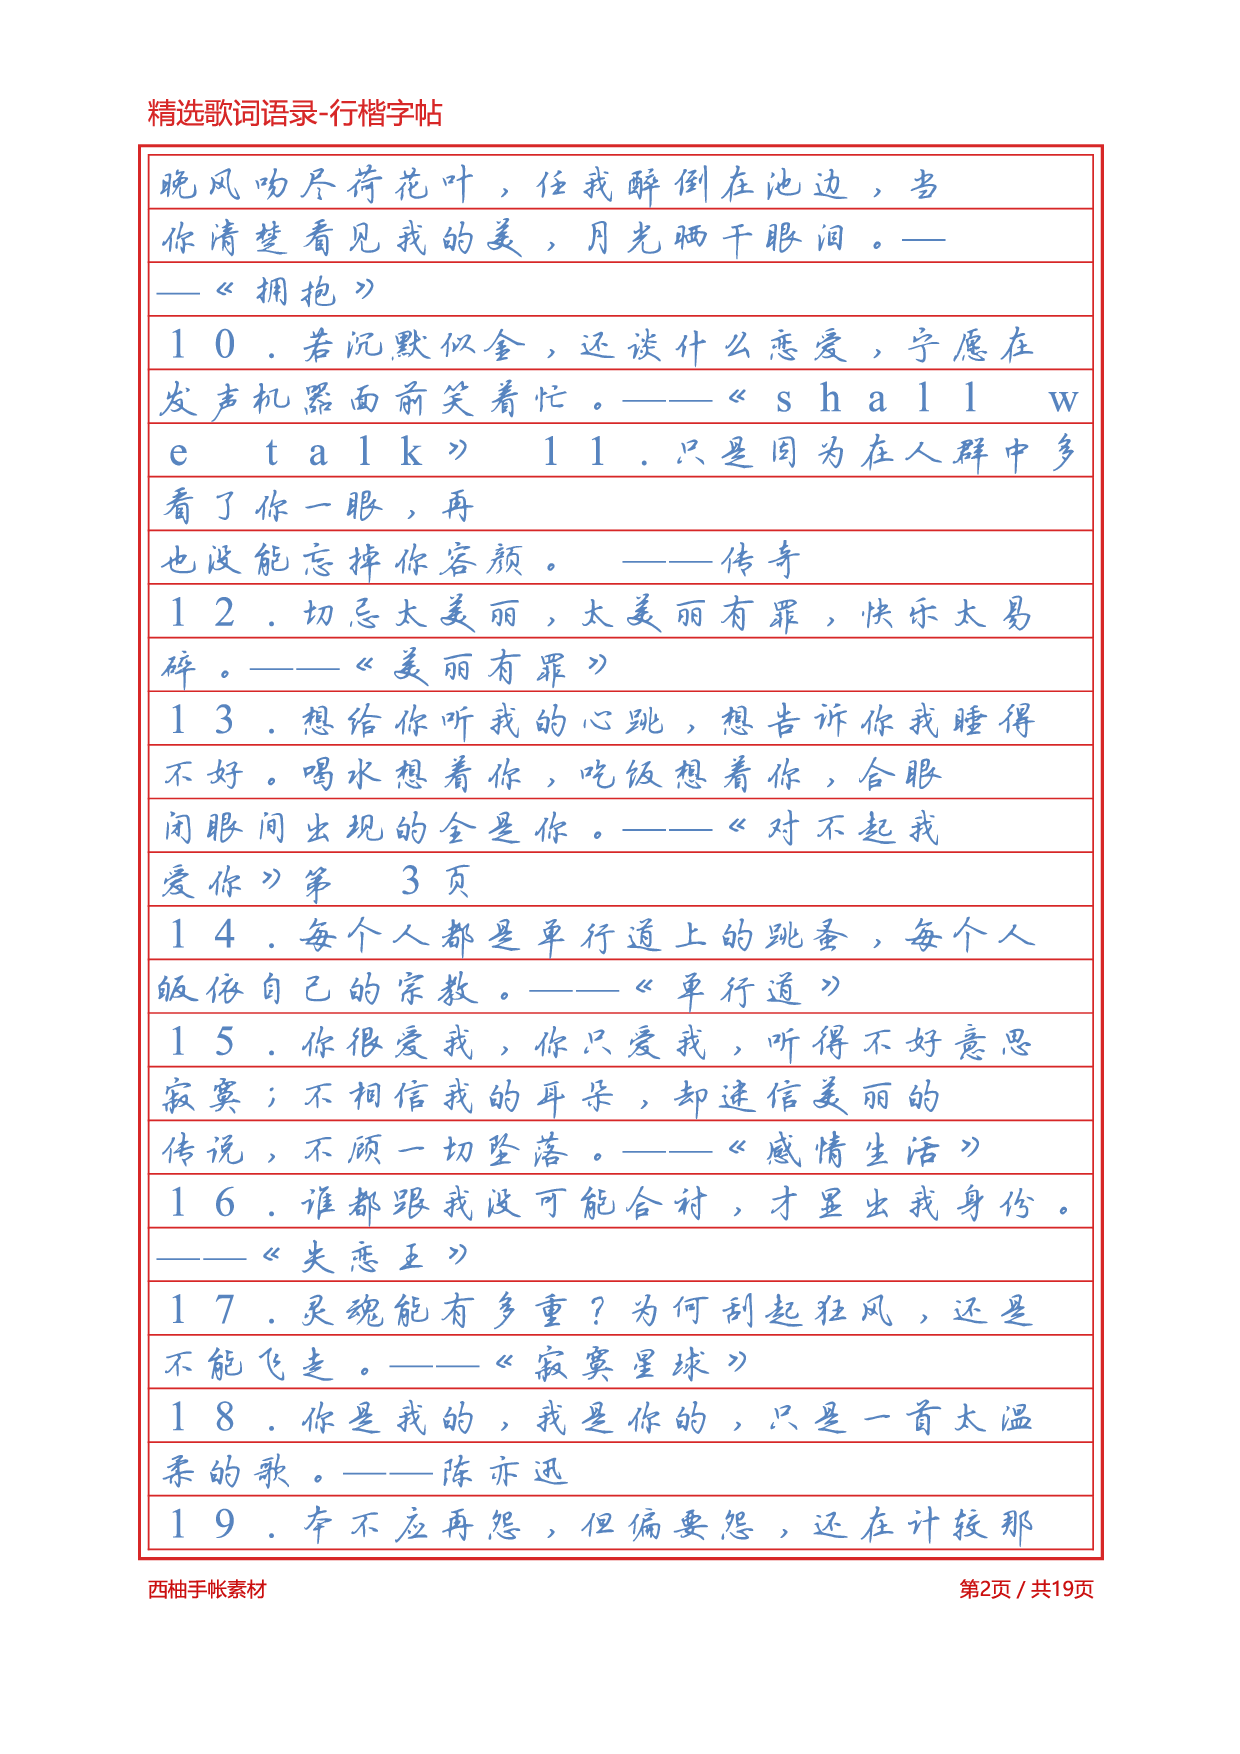 精选歌词语录-行楷字帖
晚风吻尽荷花叶，任我醉倒在池边，当
你清楚看见我的美，月光晒干眼泪。—
—《拥抱》
10.若沉默似金，还谈什么恋爱，宁愿在
发声机器面前笑着忙。——《shall w
e talk》 11.只是因为在人群中多
看了你一眼，再
也没能忘掉你容颜。 ——传奇
12.切忌太美丽，太美丽有罪，快乐太易
碎。——《美丽有罪》
13.想给你听我的心跳，想告诉你我睡得
不好。喝水想着你，吃饭想着你，合眼
闭眼间出现的全是你。——《对不起我
爱你》第 3页
14.每个人都是单行道上的跳蚤，每个人
皈依自己的宗教。——《单行道》
15.你很爱我，你只爱我，听得不好意思
寂寞；不相信我的耳朵，却迷信美丽的
传说，不顾一切坠落。——《感情生活》
16.谁都跟我没可能合衬，才显出我身份。
——《失恋王》
17.灵魂能有多重？为何刮起狂风，还是
不能飞走。——《寂寞星球》
18.你是我的，我是你的，只是一首太温
柔的歌。——陈亦迅
19.本不应再怨，但偏要怨，还在计较那
西柚手帐素材
第2页 / 共19页